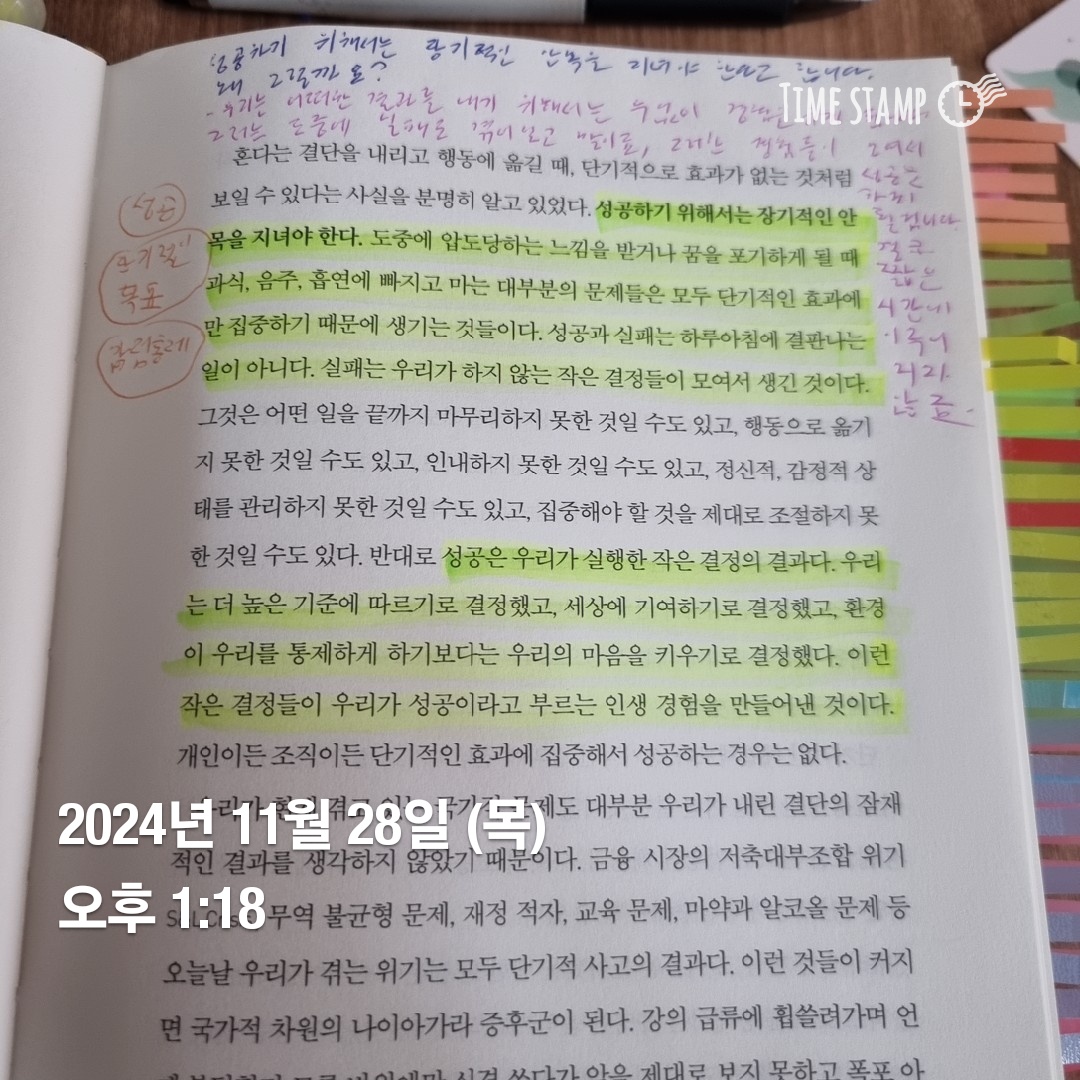 성공하기 위해서는 장기적인 안목을 지녀야 한다고 합니다.
왜 그럴까요?
- 우리는 어떠한 결과를 내기 위해서는 무엇이
그러는 도중에 실패도 겪어보고 말이죠, 그러는 경험들이 모여서
성공은
될 겁니다.
결코
짧은
시간에
이루어
지지
않죠.
TIME STAMP
혼다는 결단을 내리고 행동에 옮길 때, 단기적으로 효과가 없는 것처럼
보일 수 있다는 사실을 분명히 알고 있었다. 성공하기 위해서는 장기적인 안
목을 지녀야 한다. 도중에 압도당하는 느낌을 받거나 꿈을 포기하게 될 때
과식, 음주, 흡연에 빠지고 마는 대부분의 문제들은 모두 단기적인 효과에
만 집중하기 때문에 생기는 것들이다. 성공과 실패는 하루아침에 결판나는
일이 아니다. 실패는 우리가 하지 않는 작은 결정들이 모여서 생긴 것이다.
그것은 어떤 일을 끝까지 마무리하지 못한 것일 수도 있고, 행동으로 옮기
지 못한 것일 수도 있고, 인내하지 못한 것일 수도 있고, 정신적, 감정적 상
태를 관리하지 못한 것일 수도 있고, 집중해야 할 것을 제대로 조절하지 못
한 것일 수도 있다. 반대로 성공은 우리가 실행한 작은 결정의 결과다. 우리
는 더 높은 기준에 따르기로 결정했고, 세상에 기여하기로 결정했고, 환경
이 우리를 통제하게 하기보다는 우리의 마음을 키우기로 결정했다. 이런
작은 결정들이 우리가 성공이라고 부르는 인생 경험을 만들어낸 것이다.
개인이든 조직이든 단기적인 효과에 집중해서 성공하는 경우는 없다.
우리가 현재 겪고 있는 국가적 문제도 대부분 우리가 내린 결단의 잠재
적인 결과를 생각하지 않았기 때문이다. 금융 시장의 저축대부조합 위기
무역 불균형 문제, 재정 적자, 교육 문제, 마약과 알코올 문제 등
오늘날 우리가 겪는 위기는 모두 단기적 사고의 결과다. 이런 것들이 커지
면 국가적 차원의 나이아가라 증후군이 된다. 강의 급류에 휩쓸려가며 언
제대로 보지 못하고 폭포 아
성공
장기적인
목표
2024년 11월 28일 (목)
오후 1:18